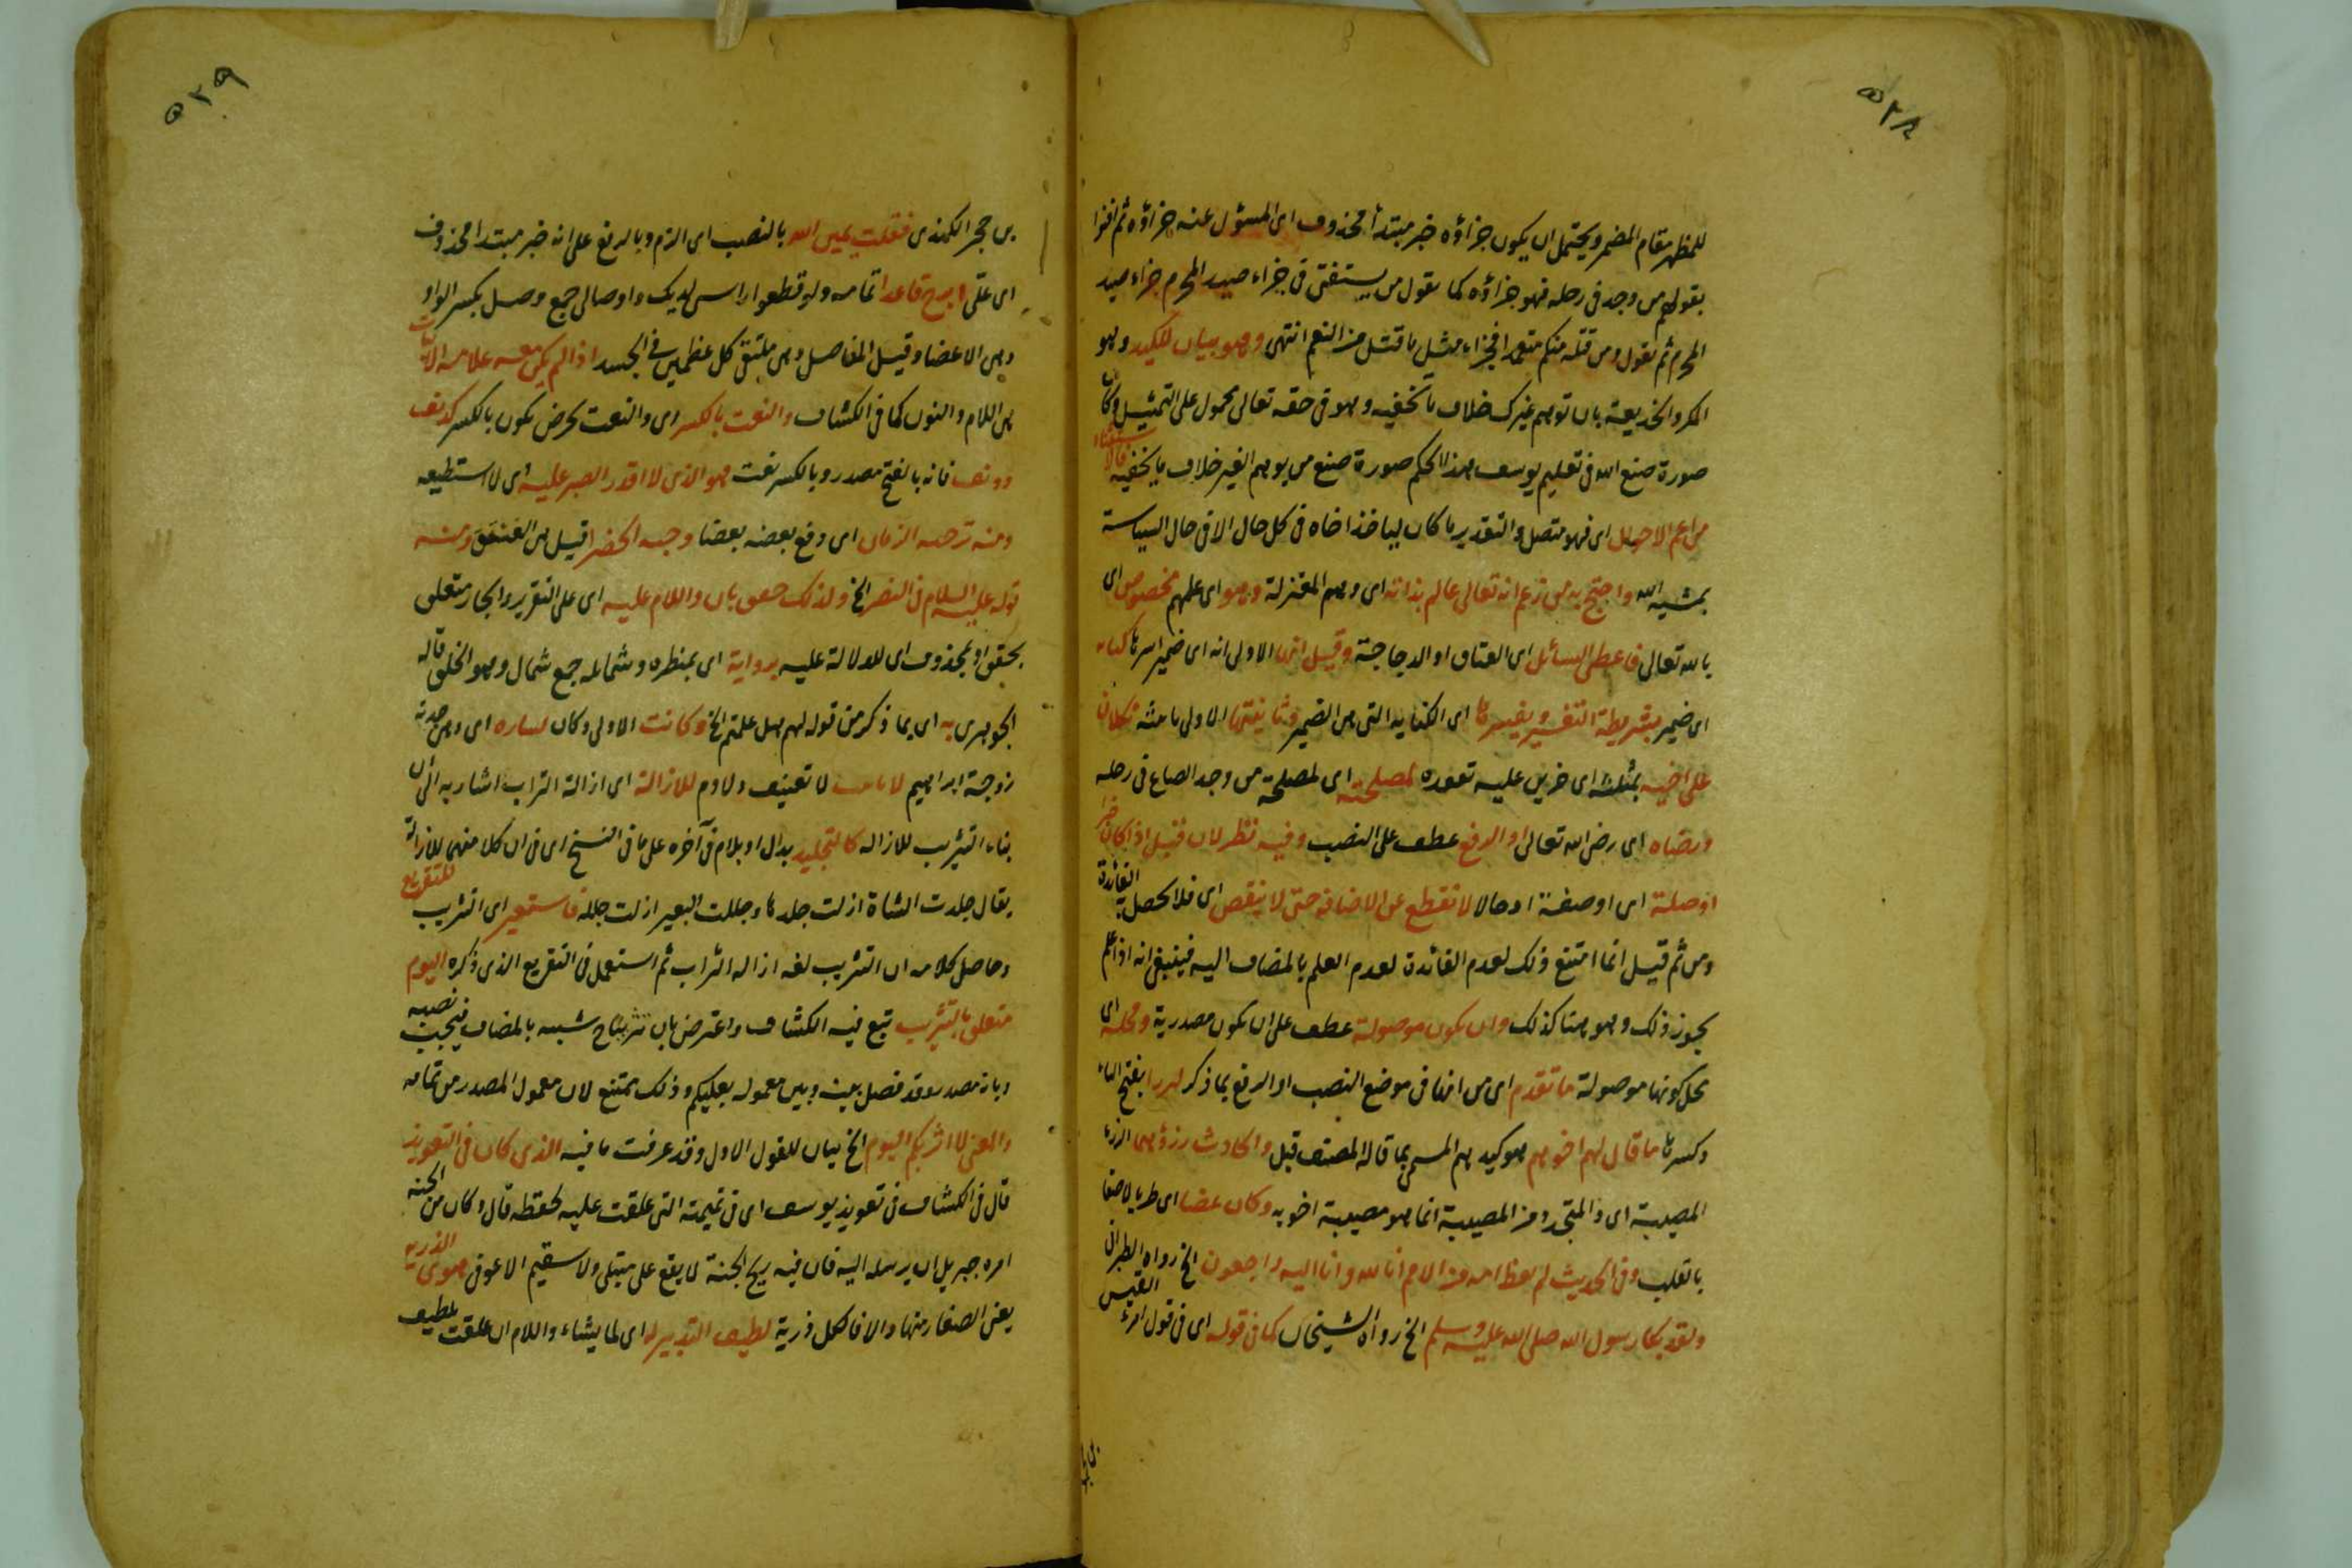 ٥٢٨
للمظهر مقام المضمر ويحتمل ان يكون جزاؤه خبر مبتدأ محذوف اى المسؤل عنه جزاؤه ثم افتوا
بقولهم من وجد فى رحله فهو جزاؤه كما يقول من يستفتى فى جزاء صيد المحرم جزاء صيد
المحرم ثم يقول ومن قتله منكم متعمدا فجزاء مثل ما قتل من النعم انتهى وهو بيان للكيد وهو
المكر والخديعة بان توهم غيرك خلاف ما تخفيه وهو فى حقه تعالى محمول على التمثيل وكان
صورة صنع الله فى تعليم يوسف هذا الحكم صورة صنع من يوهم الغير خلاف ما يخفيه
من اعم الاحوال اى فهو متصل والتقدير ما كان لياخذ اخاه فى كل حال الا فى حال
بمشية الله واحتج به من زعم انه تعالى عالم بذاته اى وهم المعتزلة وهو اى علمهم مخصوص اى
بالله تعالى فاعطى السائل اى العناق او الدجاجة وقيل انها الاولى انه اى ضمير اسرها كناية
اى ضمير بشريطة التفسير يفسرها اى الكناية التى هى الضمير
على اخيه بمثلثة اى حزين عليه تعوده لمصلحته اى لمصلحة من وجد الصاع فى رحله
ورضاه اى رضى الله تعالى او الرفع عطف على النصب وفيه نظر لان قبل اذا كان خبرا
او صلة اى او صفة او حالا لا تقطع عن الاضافة حتى لا ينقص اى فلا تحصل به الفائدة
ومن ثم قيل انما امتنع ذلك لعدم الفائدة لعدم العلم بالمضاف اليه فينبغى انه اذا علم
يجوز ذلك وهو هنا كذلك وان يكون موصولة عطف على ان يكون مصدرية ومحله اى
محل كونها موصولة ما تقدم اى من انها فى موضع النصب او الرفع بما ذكر بفتح الباء
وكسرها ما قال لهم اخوهم هو كبيرهم المسمى بما قاله المصنف قبل والحادث رزؤهما الرزء
المصيبة اى والمتجدد من المصيبة انما هو مصيبة اخويه وكان غضا اى طريا لاصقا
بالقلب وفى الحديث لم يعط امة من الامم انا لله وانا اليه راجعون الخ رواه الطبرانى
ولقد بكا رسول الله صلى الله عليه وسلم الخ رواه الشيخان كما فى قوله اى فى قول امرئ القيس
٥٢٩
بن حجر الكندى فقلت يمين الله بالنصب اى الزم وبالرفع على انه خبر مبتدا محذوف
اى على ابرح قاعدا تمامه ولو قطعوا راسى لديك واوصالى جمع وصل بكسر الواو
وهى الاعضا وقيل المفاصل وهى ملتقى كل عظمين فى الجسد اذا لم يكن معه علامة الاثبات
هى اللام والنون كما فى الكشاف والنعت بالكسر اى والنعت لحرض يكون بالكسر كدنف
ودنف فانه بالفتح مصدر وبالكسر نعت هو الذى لا اقدر الصبر عليه اى لا استطيعه
ومنه ترحمه الزمان اى دفع بعضه بعضا وجبه الخضرا قيل هى الفستق ومنه
قوله عليه السلام فى النضر الخ ولذلك حقق بان واللام عليه اى على التقرير والجار متعلق
بحقق او بمحذوف اى للدلالة عليه برواية اى بمنظره وشمايله جمع شمال وهو الخلق قاله
الجوهرى به اى بما ذكر من قوله لهم هل علمتم الخ وكانت الاولى وكان لساره اى وهى جدته
زوجة ابراهيم لا تانيب لا تعنيف ولا لوم للازالة اى ازالة الثرب اشار به الى ان
بناء التثريب للازالة كالتجليد بدال او بلام فى آخره على ما فى النسخ اى فى ان كلا منهما للازالة
يقال جلدت الشاة ازلت جلدها وجللت البعير ازلت جلله فاستعير اى التثريب للتقريع
وحاصل كلامه ان التثريب لغة ازالة الثرب ثم استعمل فى التقريع الذى ذكره اليوم
متعلق بالتثريب تبع فيه الكشاف واعترض بان شبيه بالمضاف فيجب نصبه
وبانه مصدر وقد فصل بينه وبين معموله بعليكم وذلك ممتنع لان معمول المصدر من تمامه
والمعنى لا اثربكم اليوم الخ بيان للقول الاول وقد عرفت ما فيه الذى كان فى التعويذ
قال فى الكشاف فى تعويذ يوسف اى فى تميمته التى علقت عليه لحفظه قال وكان من الجنة
امره جبريل ان يرسله اليه فان فيه ريح الجنة لا يقع على مبتلى ولا سقيم الا عوفى سوى الذرية
يعنى الصغار منها والا فالكل ذرية لطيف التدبير له اى لما يشاء واللام ان علقت بلطيف